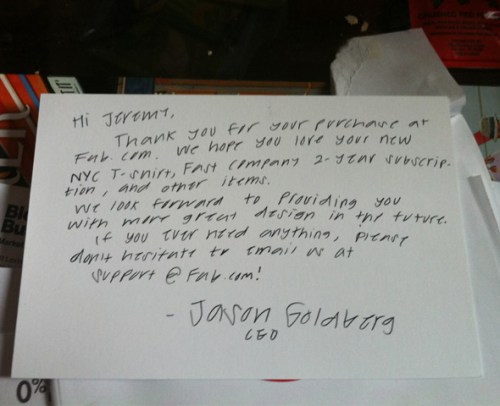 Hi Jeremy,
Thank you for your purchase at
Fab.com. We hope you love your new
NYC T-shirt, Fast Company 2-year subscrip-
tion, and other items.
We look forward to providing you
with more great design in the future.
If you ever need anything, please
don't hesitate to email us at
support@Fab.com!
- Jason Goldberg
CEO
0%